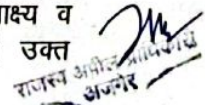 क्ष्य व
उक्त
राजस्व अपील प्राधिकारी
अजमेर